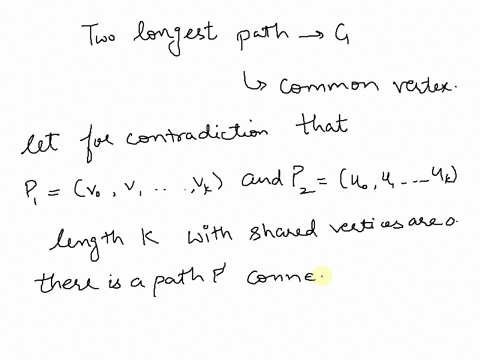 Two longest path → G
↳ common vertex.
let for contradiction that
P₁ = (v₀, v₁ . . ., vₖ) and P₂ = (u₀, u₁ --- uₖ)
length K with shared vertices are 0.
there is a path P' conne